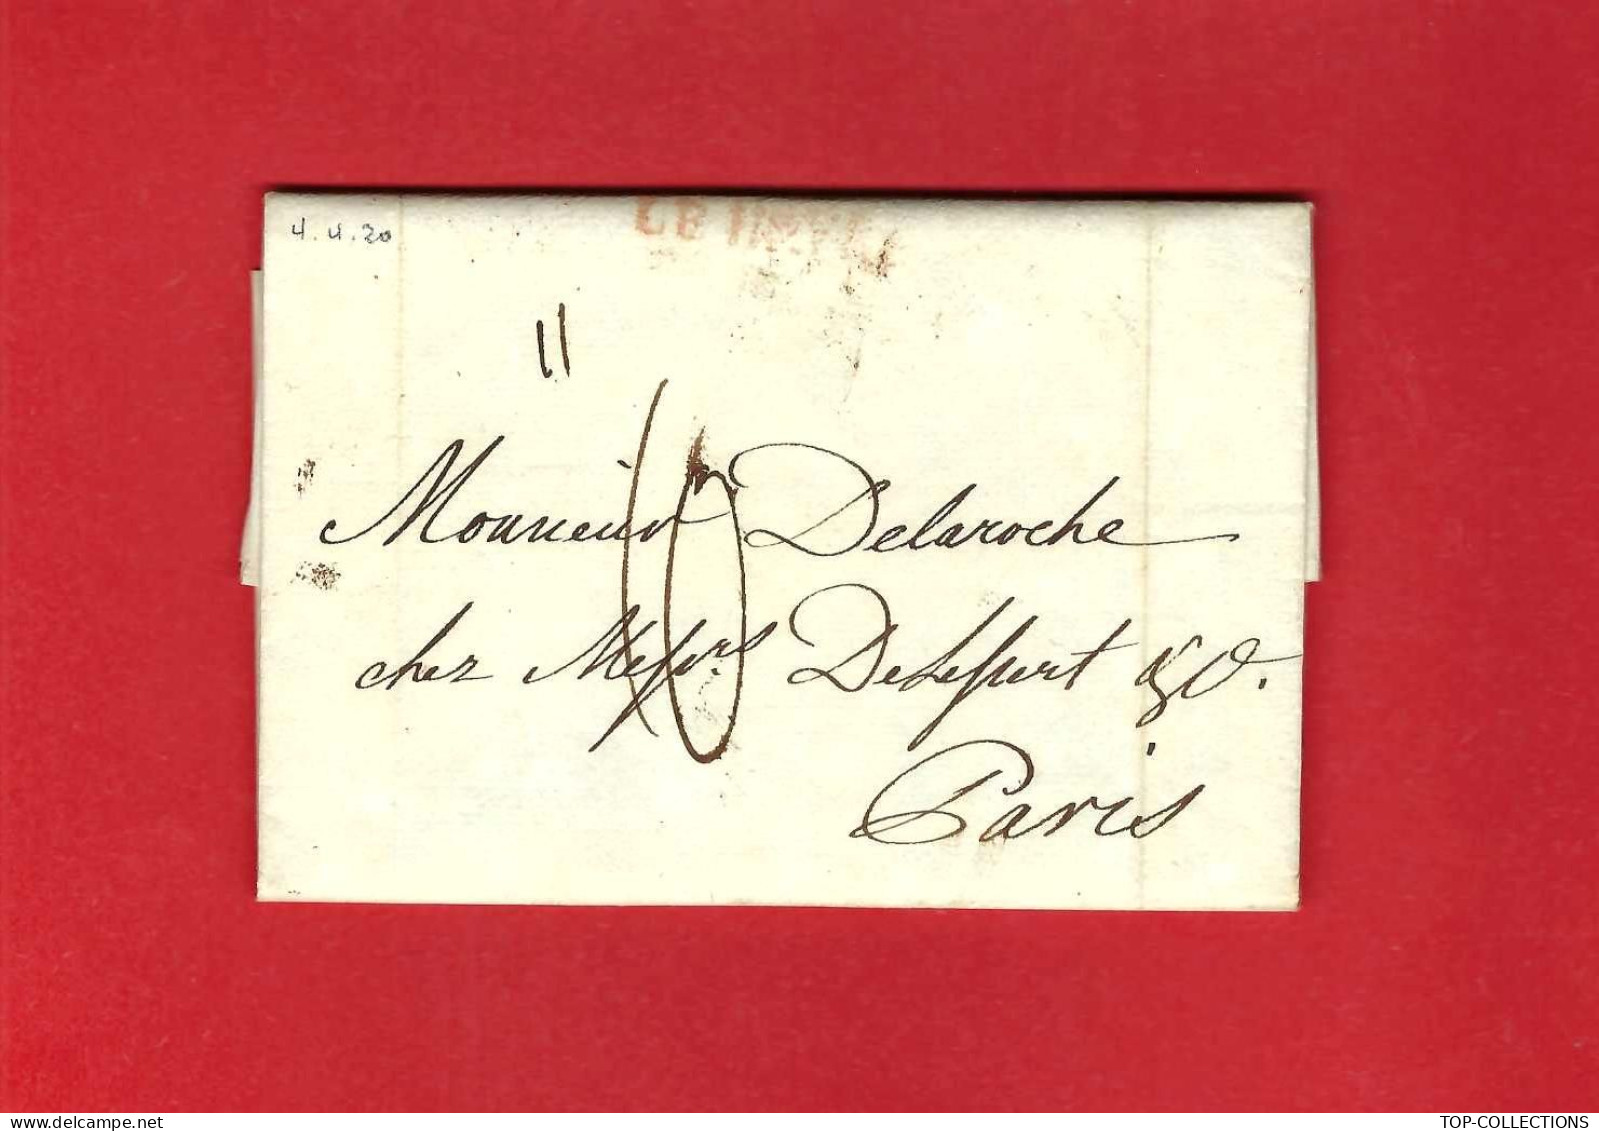 4.4.20
LE
11
10
Monsieur Delaroche
chez Messrs Delessert & Co.
Paris
www.delcampe.net
TOP-COLLECTIONS